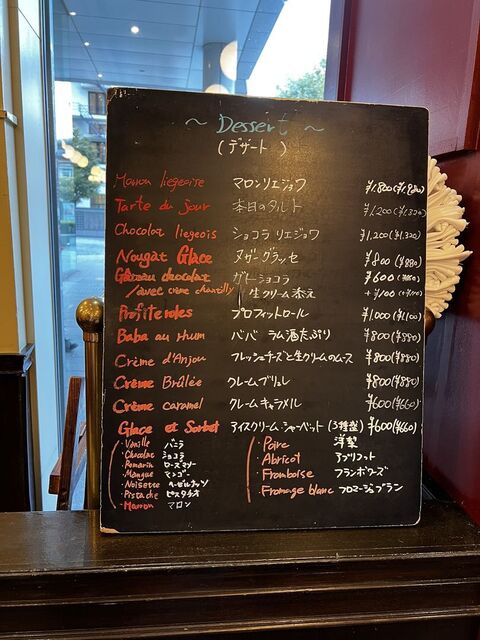 ~ Dessert ~
(デザート)
Marron liegeoise マロンリエジョワ ¥1.800(¥1.980)
Tarte du jour 本日のタルト ¥1,200(¥1.320)
Chocolat liegeois ショコラ リエジョワ ¥1,200(¥1.320)
Nougat Glace ヌガーグラッセ ¥800(¥880)
Gâteau chocolat ガトーショコラ ¥600(¥660)
/avec crème chantilly 生クリーム添え +¥100(+¥110)
Profiteroles プロフィットロール ¥1,000(¥1,100)
Baba au rhum ババ ラム酒たっぷり ¥800(¥880)
Crème d'Anjou フレッシュチーズと生クリームのムース ¥800(¥880)
Crème Brûlée クレームブリュレ ¥800(¥880)
Crème caramel クレームキャラメル ¥600(¥660)
Glace et Sorbet アイスクリーム・シャーベット(3種盛) ¥600(¥660)
・Vanille バニラ
・Chocolat ショコラ
・Romarin ローズマリー
・Mangue マンゴー
・Noisette ヘーゼルナッツ
・Pistache ピスタチオ
・Marron マロン
・Poire 洋梨
・Abricot アプリコット
・Framboise フランボワーズ
・Fromage blanc フロマージュブラン